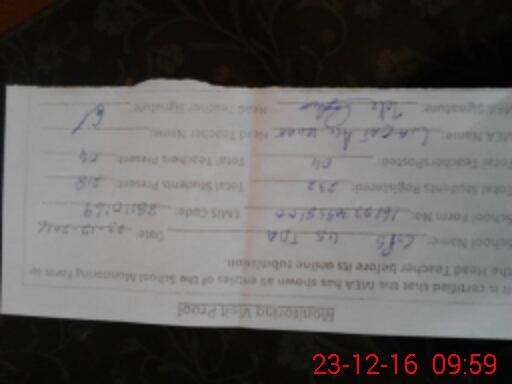 Monitoring Visit Proof
It is certified that the MEA has shown all entries of the School Monitoring Form to
the Head Teacher before its online submission.
School Name: GPS 45 TDA Date: 23-12-2016
School Form No: EMIS Code:
Total Students Registered: 232 Total Students Present: 218
Total TeachersPosted: 04 Total Teachers Present: 04
MEA Name: Head Teacher Name:
MEA Signature: Head Teacher Signature:
23-12-16 09:59